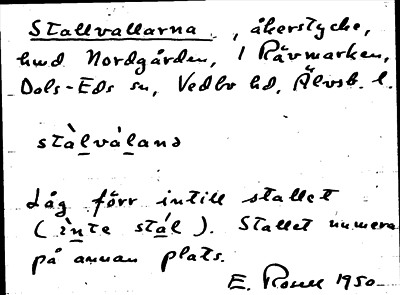 Stallvallarna, åkerstycke,
hmd Nordgården, 1 Rävmarken,
Dals-Eds sn, Vedbo hd, Älvsb. l.
stàlvàlanə
Låg förr intill stallet
(ìnte stál). Stallet numera
på annan plats.
E. 1950